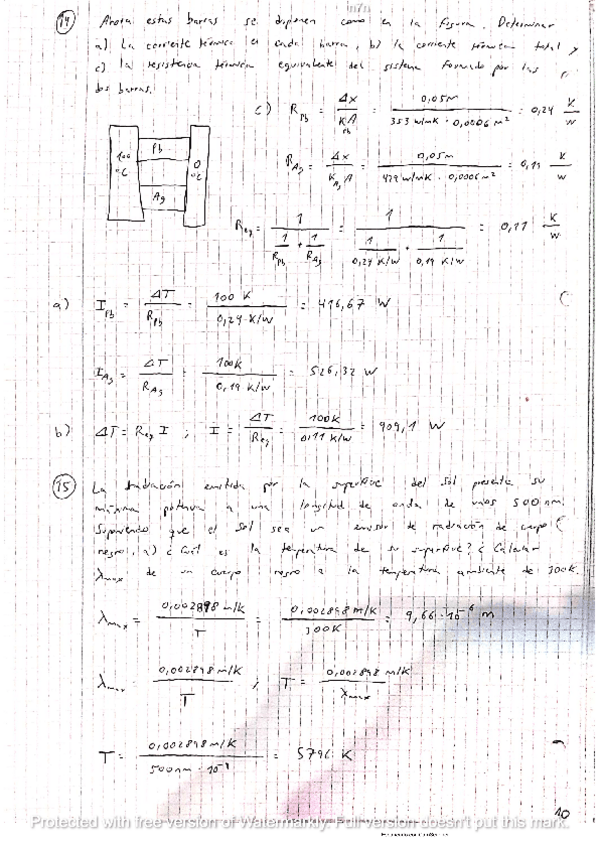 14 Ahora estas barras se disponen como en la figura. Determinar
a) La corriente térmica en cada barra, b) la corriente térmica total y
c) la resistencia térmica equivalente del sistema formado por las
dos barras.
c) R_Pb = Δx / K_Pb A = 0,05m / 353 W/mK · 0,0006 m² = 0,24 K/W
100 °C Pb 0 °C Ag
R_Ag = Δx / K_Ag A = 0,05m / 429 W/mK · 0,0006 m² = 0,19 K/W
R_eq = 1 / (1/R_Pb + 1/R_Ag) = 1 / (1/0,24 K/W + 1/0,19 K/W) = 0,11 K/W
a) I_Pb = ΔT / R_Pb = 100 K / 0,24 K/W = 416,67 W
I_Ag = ΔT / R_Ag = 100K / 0,19 K/W = 526,32 W
b) ΔT = R_eq I ; I = ΔT / R_eq = 100K / 0,11 K/W = 909,1 W
15 La radiación emitida por la superficie del sol presenta su
máxima potencia a una longitud de onda de unos 500 nm.
Suponiendo que el Sol sea un emisor de radiación de cuerpo
negro, a) ¿Cuál es la temperatura de su superficie? ¿Calcular
λmax de un cuerpo negro a la temperatura ambiente de 300K.
λmax = 0,002898 m/K / T = 0,002898 m/K / 300K = 9,66·10⁻⁶ m
λmax 0,002898 m/K / T ; T = 0,002898 m/K / λmax
T = 0,002898 m/K / 500nm·10⁻⁹ = 5796 K
10
Protected with free version of Watermarkly. Full version doesn't put this mark.